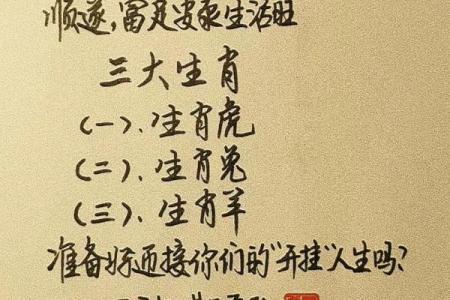 顺遂，富足安康生活旺
三大生肖
(一)、生肖虎
(二)、生肖兔
(三)、生肖羊
准备好迎接你们的“开挂”人生吗?